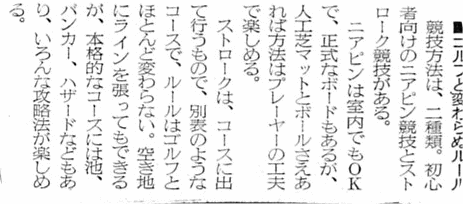 ■ゴルフと変わらぬルール
競技方法は、二種類。初心
者向けのニアピン競技とスト
ローク競技がある。
ニアピンは室内でもOK
で、正式なボードもあるが、
人工芝マットとボールさえあ
れば方法はプレーヤーの工夫
で楽しめる。
ストロークは、コースに出
て行うもので、別表のような
コースで、ルールはゴルフと
ほとんど変わらない。空き地
にラインを張ってもできる
が、本格的なコースには池、
バンカー、ハザードなどもあ
り、いろんな攻略法が楽しめ
る。